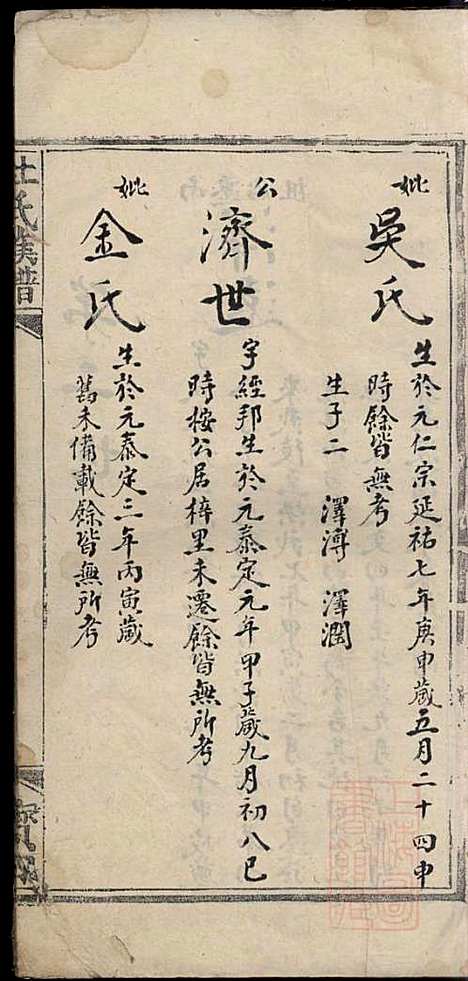 妣
吳氏
生於元仁宗延祐七年庚申歲五月二十四申
時餘皆無考
生子二 澤溥 澤潤
公
濟世
字經邦生於元泰定元年甲子歲九月初八巳
時按公居梓里未遷餘皆無所考
妣
金氏
生於元泰定三年丙寅歲
舊未備載餘皆無所考
氏族譜